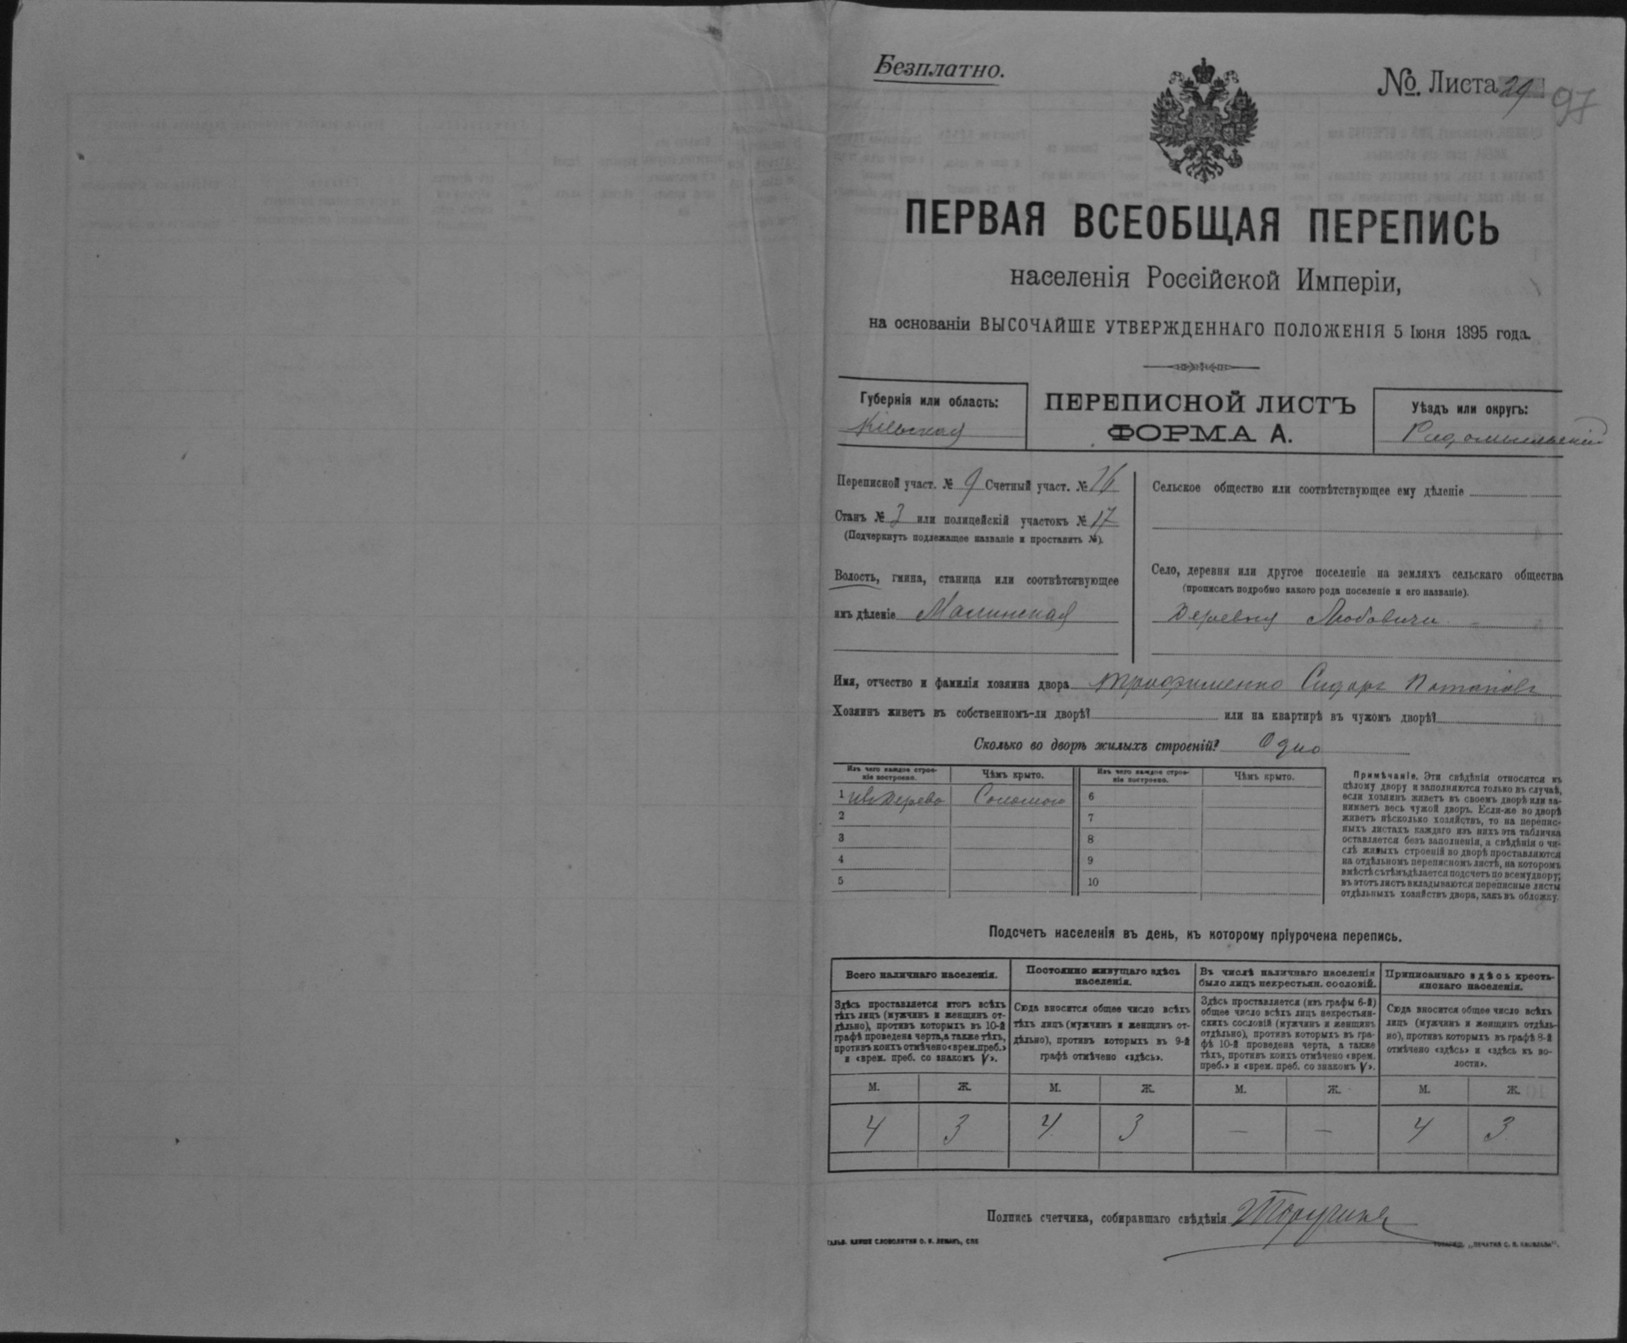 Безплатно.
№. Листа 29
97
ПЕРВАЯ ВСЕОБЩАЯ ПЕРЕПИСЬ
населенія Россійской Имперіи,
на основаніи ВЫСОЧАЙШЕ УТВЕРЖДЕННАГО ПОЛОЖЕНІЯ 5 Іюня 1895 года.
Губернія или область:
Кіевская
ПЕРЕПИСНОЙ ЛИСТЪ
ФОРМА А.
Уѣздъ или округъ:
Радомысльскій
Переписной участ. № 9 Счетный участ. № 26
Станъ № 3 или полицейскій участокъ № 17
(Подчеркнуть подлежащее названіе и проставить №).
Волость, гмина, станица или соотвѣтствующее
имъ дѣленіе Малинская
Сельское общество или соотвѣтствующее ему дѣленіе
Село, деревня или другое поселеніе на земляхъ сельскаго общества
(прописать подробно какого рода поселеніе и его названіе).
Деревня Любовичи
Имя, отчество и фамилія хозяина двора Трофименко Сидоръ Потаповъ
Хозяинъ живетъ въ собственномъ-ли дворѣ? или на квартирѣ въ чужомъ дворѣ?
Сколько во дворѣ жилыхъ строеній? Одно
Изъ чего каждое строе-
ніе построено.
Чѣмъ крыто.
Изъ чего каждое строе-
ніе построено.
Чѣмъ крыто.
1 изъ дерева Соломою 6
2 7
3 8
4 9
5 10
Примѣчаніе. Эти свѣдѣнія относятся къ
цѣлому двору и заполняются только въ случаѣ,
если хозяинъ живетъ въ своемъ дворѣ или за-
нимаетъ весь чужой дворъ. Если-же во дворѣ
живетъ нѣсколько хозяйствъ, то на перепис-
ныхъ листахъ каждаго изъ нихъ эта табличка
оставляется безъ заполненія, а свѣдѣнія о чи-
слѣ жилыхъ строеній во дворѣ проставляются
на отдѣльномъ переписномъ листѣ, на которомъ
вмѣстѣ съ тѣмъ дѣлается подсчетъ по всему двору;
въ этотъ листъ вкладываются переписные листы
отдѣльныхъ хозяйствъ двора, какъ въ обложку.
Подсчетъ населенія въ день, къ которому пріурочена перепись.
Всего наличнаго населенія.
Здѣсь проставляется итогъ всѣхъ
тѣхъ лицъ (мужчинъ и женщинъ от-
дѣльно), противъ которыхъ въ 10-й
графѣ проведена черта, а также тѣхъ,
противъ коихъ отмѣчено «врем. преб.»
и «врем. преб. со знакомъ V».
Постоянно живущаго здѣсь
населенія.
Сюда вносится общее число всѣхъ
тѣхъ лицъ (мужчинъ и женщинъ от-
дѣльно), противъ которыхъ въ 9-й
графѣ отмѣчено «здѣсь».
Въ числѣ наличнаго населенія
было лицъ некрестьян. сословій.
Здѣсь проставляется (изъ графы 6-й)
общее число всѣхъ лицъ некрестьян-
скихъ сословій (мужчинъ и женщинъ
отдѣльно), противъ которыхъ въ гра-
фѣ 10-й проведена черта, а также
тѣхъ, противъ коихъ отмѣчено «врем.
преб.» и «врем. преб. со знакомъ V».
Приписаннаго здѣсь кресть-
янскаго населенія.
Сюда вносится общее число всѣхъ
лицъ (мужчинъ и женщинъ отдѣль-
но), противъ которыхъ въ графѣ 8-й
отмѣчено «здѣсь» и «здѣсь въ во-
лости».
М. Ж. М. Ж. М. Ж. М. Ж.
4 3 4 3 — — 4 3
Подпись счетчика, собиравшаго свѣдѣнія
ГАЛЬВ. КЛИШЕ СЛОВОЛИТНИ О. И. ЛЕМАНЪ, СПБ